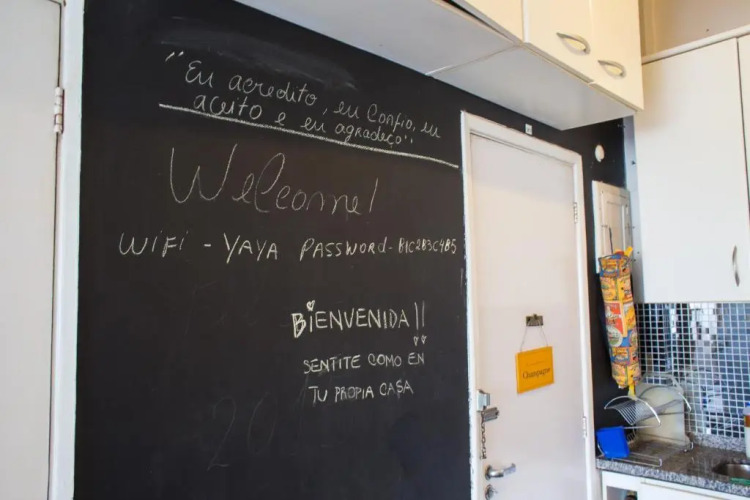 "Eu acredito, eu confio, eu
aceito e eu agradeço"
Welcome!
WiFi - YAYA PASSWORD - B1C2B3C4B5
BiENVENIDA!!
SENTITE COMO EN
TU PROPIA CASA
20
Champagne